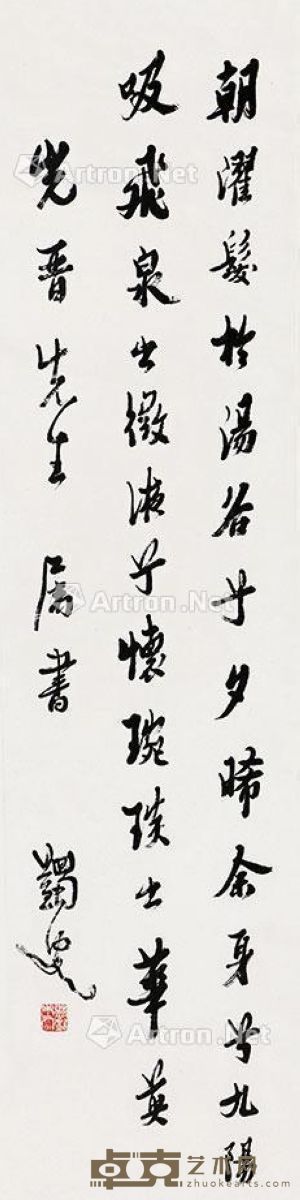 朝濯髮於湯谷兮夕晞余身兮九陽
吸飛泉之微液兮懷琬琰之華英
光晉先生 屬書 蠲叟
Artron.Net
Artron.Net
Artron.Net
卓克艺术网
www.zhuokearts.com